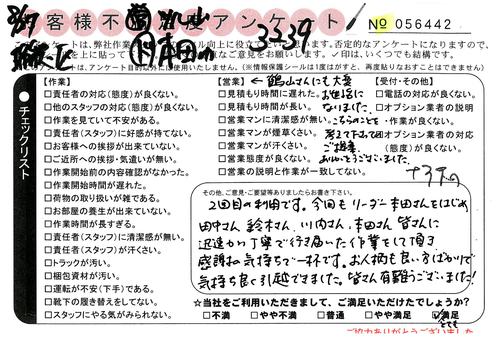 お客様不満足度アンケート
No 056442
3339
【作業】
□責任者の対応(態度)が良くない。
□他のスタッフの対応(態度)が良くない。
□作業を見ていて不安がある。
□責任者(スタッフ)に好感が持てない。
□お客様への挨拶が出来ていない。
□ご近所への挨拶・気遣いが無い。
□作業開始前の内容確認がなかった。
□作業開始時間が遅れた。
□荷物の取り扱いが雑である。
□お部屋の養生が出来ていない。
□作業時間が長すぎる。
□責任者(スタッフ)に清潔感が無い。
□責任者(スタッフ)が汗くさい。
□トラックが汚い。
□梱包資材が汚い。
□運転が不安(下手)である。
□靴下の履き替えをしてない。
□スタッフにやる気がみられない。
チェックリスト
【営業】
←鶴山さんにも大変
□見積もり時間に遅れた。お世話に
□見積もり時間が長い。なりました。
□営業マンに清潔感が無い。こちらのことを
□営業マンが煙草くさい。考えて下さっての
□営業マンが汗くさい。ご提案、
□営業態度が良くない。ありがとうございました。
□営業の説明と作業が一致してない。
【受付・その他】
□電話の対応が良くない。
□オプション業者の説明
・作業が良くない。
□オプション業者の対応
(態度)が良くない。
その他、ご意見・ご要望等ありましたらお書き下さい。
2回目の利用です。今回もリーダー本田さんをはじめ
田中さん 鈴木さん、川内さん、本田さん 皆さんに
迅速かつ丁寧で行き届いた作業をして頂き
感謝の気持ちで一杯です。お人柄も良い方ばかりで
気持ち良く引越できました。皆さん有難うございました!
☆当社をご利用いただきまして、ご満足いただけたでしょうか?
□不満 □やや不満 □普通 □やや満足 ☑満足
とても
ご協力ありがとうございました